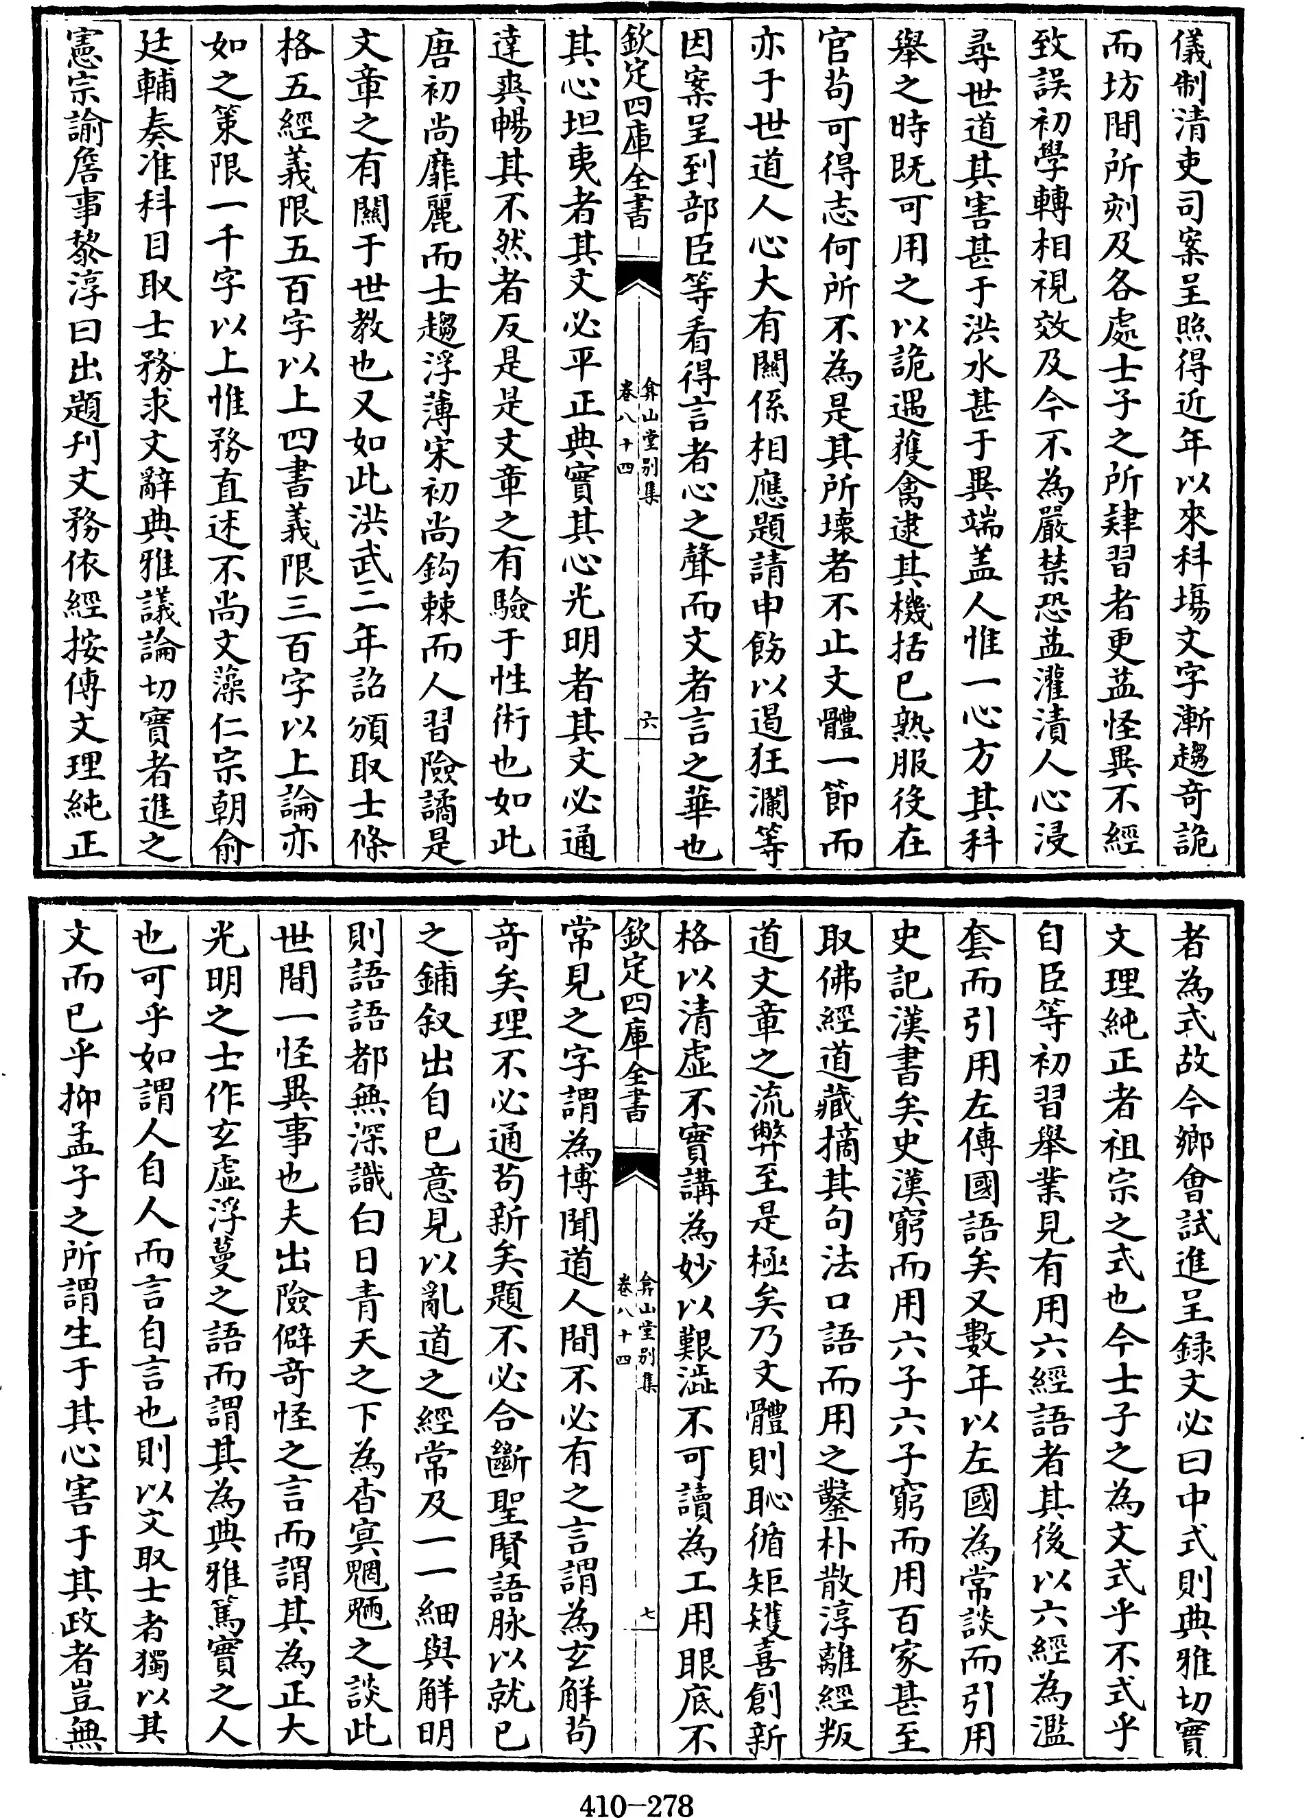 儀制清吏司案呈照得近年以來科塲文字漸趨竒詭
而坊間所刻及各處士子之所肄習者更益怪異不經
致誤初學轉相視效及今不為嚴禁恐益灌漬人心浸
尋世道其害甚于洪水甚于異端盖人惟一心方其科
舉之時既可用之以詭遇獲禽逮其機括已熟服役在
官茍可得志何所不為是其所壞者不止文體一節而
亦于世道人心大有關係相應題請申飭以遏狂瀾等
因案呈到部臣等看得言者心之聲而文者言之華也
欽定四庫全書
弇山堂别集
卷八十四
六
其心坦夷者其文必平正典實其心光明者其文必通
達爽暢其不然者反是是文章之有驗于性術也如此
唐初尚靡麗而士趨浮薄宋初尚鈎棘而人習險譎是
文章之有關于世教也又如此洪武二年詔頒取士條
格五經義限五百字以上四書義限三百字以上論亦
如之策限一千字以上惟務直述不尚文藻仁宗朝俞
廷輔奏准科目取士務求文辭典雅議論切實者進之
憲宗諭詹事黎淳曰出題刋文務依經按傳文理純正
者為式故今鄉會試進呈録文必曰中式則典雅切實
文理純正者祖宗之式也今士子之為文式乎不式乎
自臣等初習舉業見有用六經語者其後以六經為濫
套而引用左傳國語矣又數年以左國為常談而引用
史記漢書矣史漢窮而用六子六子窮而用百家甚至
取佛經道藏摘其句法口語而用之鑿朴散淳離經叛
道文章之流弊至是極矣乃文體則恥循矩矱喜創新
格以清虛不實講為妙以艱澁不可讀為工用眼底不
欽定四庫全書
弇山堂别集
卷八十四
七
常見之字謂為博聞道人間不必有之言謂為玄解茍
竒矣理不必通茍新矣題不必合斷聖賢語脉以就已
之鋪叙出自已意見以亂道之經常及一一細與解明
則語語都無深識白日青天之下為杳冥魍魎之談此
世間一怪異事也夫出險僻竒怪之言而謂其為正大
光明之士作玄虛浮蔓之語而謂其為典雅篤實之人
也可乎如謂人自人而言自言也則以文取士者獨以其
文而已乎抑孟子之所謂生于其心害于其政者豈無
410-278